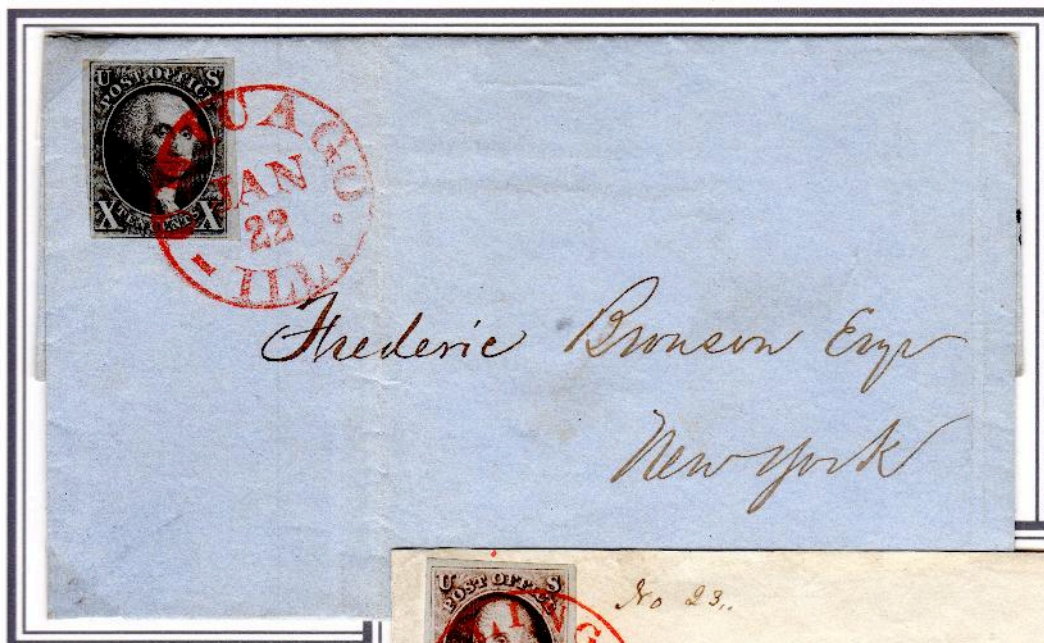 U S
POST OFFICE
X TEN CENTS X
JAN
22
ILL.
Frederic Bronson Esqr
New York
U S
POST OFFICE
No 23,,